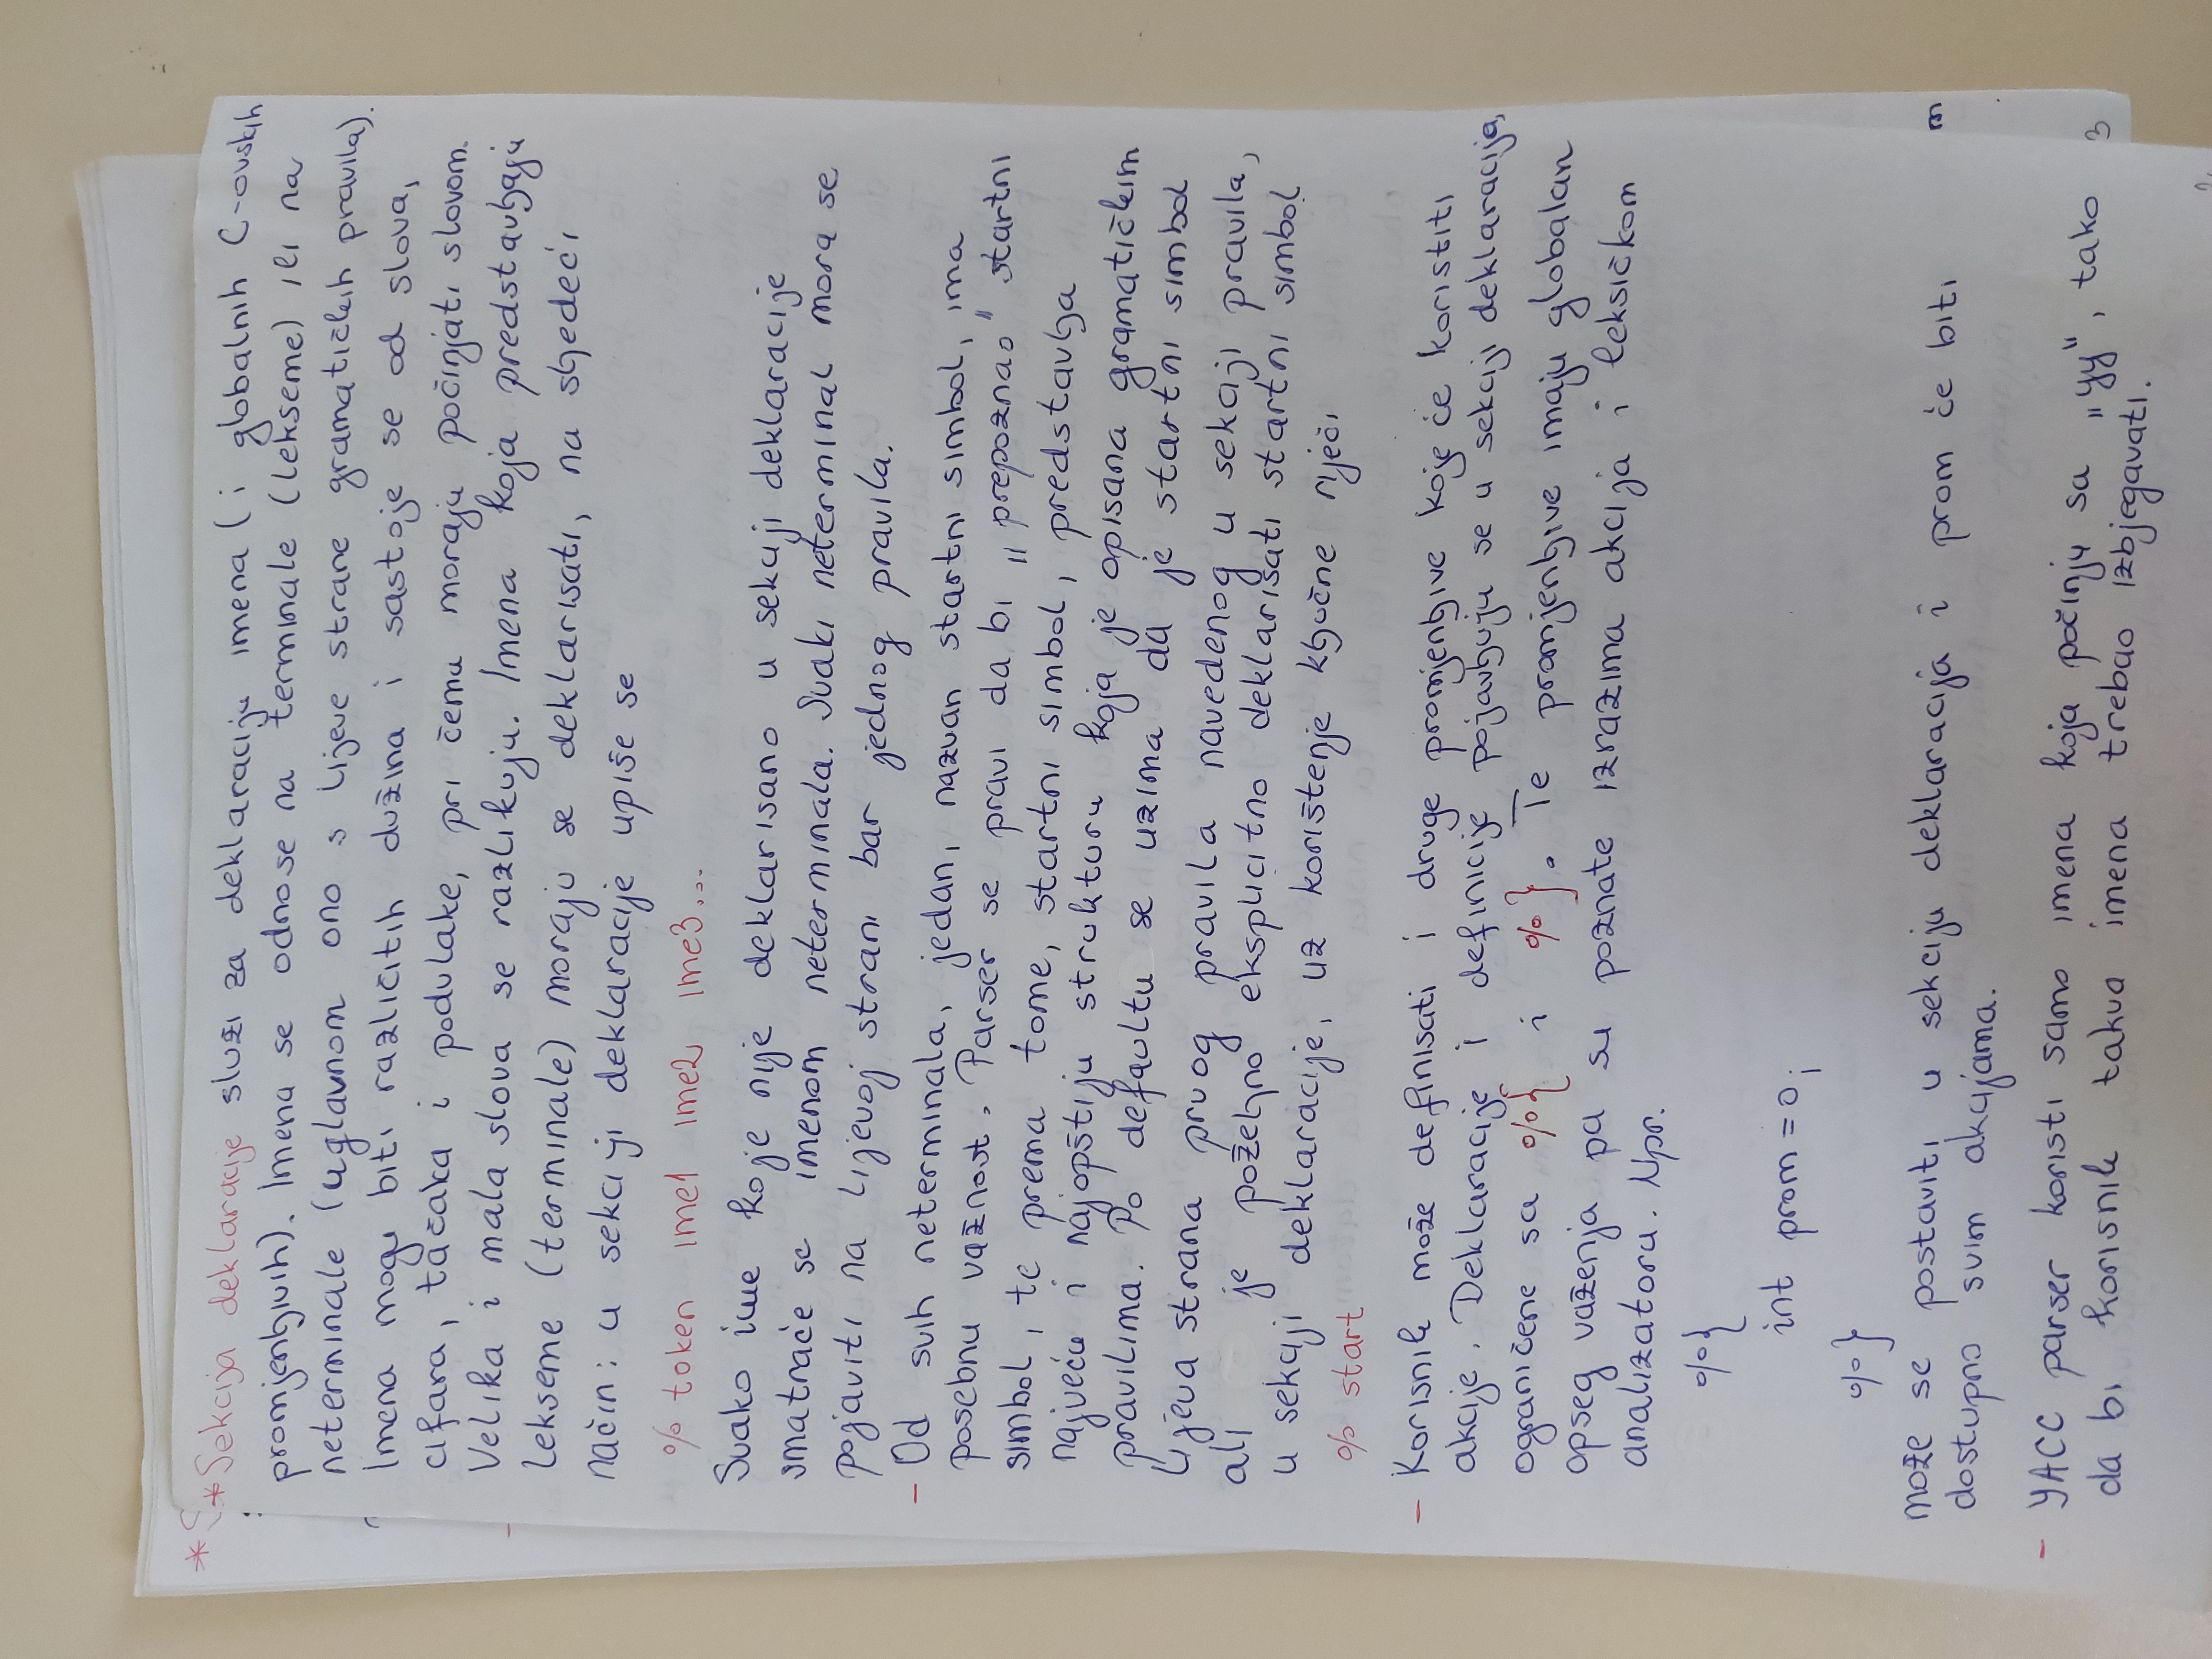 * Sekcija deklaracije služi za deklaraciju imena (i globalnih C-ovskih
promjenljivih). Imena se odnose na terminale (lekseme) ili na
neterminale (uglavnom ono s lijeve strane gramatičkih pravila).
Imena mogu biti različitih dužina i sastoje se od slova,
cifara, tačaka i podvlake, pri čemu moraju počinjati slovom.
Velika i mala slova se razlikuju. Imena koja predstavljaju
lekseme (terminale) moraju se deklarisati, na sljedeći
način: u sekciji deklaracije upiše se
% token ime1 ime2 ime3...
Svako ime koje nije deklarisano u sekciji deklaracije
smatraće se imenom neterminala. Svaki neterminal mora se
pojaviti na lijevoj strani bar jednog pravila.
- Od svih neterminala, jedan, nazvan startni simbol, ima
posebnu važnost. Parser se pravi da bi „prepoznao" startni
simbol, te prema tome, startni simbol, predstavlja
najveću i najopštiju strukturu koja je opisana gramatičkim
pravilima. Po defaultu se uzima da je startni simbol
lijeva strana prvog pravila navedenog u sekciji pravila,
ali je poželjno eksplicitno deklarisati startni simbol
u sekciji deklaracije, uz korištenje ključne riječi
% start
- Korisnik može definisati i druge promjenljive koje će koristiti
akcije. Deklaracije i definicije pojavljuju se u sekciji deklaracija,
ograničene sa %{ i %}. Te promjenljive imaju globalan
opseg važenja pa su poznate izrazima akcija i leksičkom
analizatoru. Npr.
%{
int prom = 0;
%}
može se postaviti u sekciju deklaracija i prom će biti
dostupno svim akcijama.
- YACC parser koristi samo imena koja počinju sa „yy", tako
da bi korisnik takva imena trebao izbjegavati.